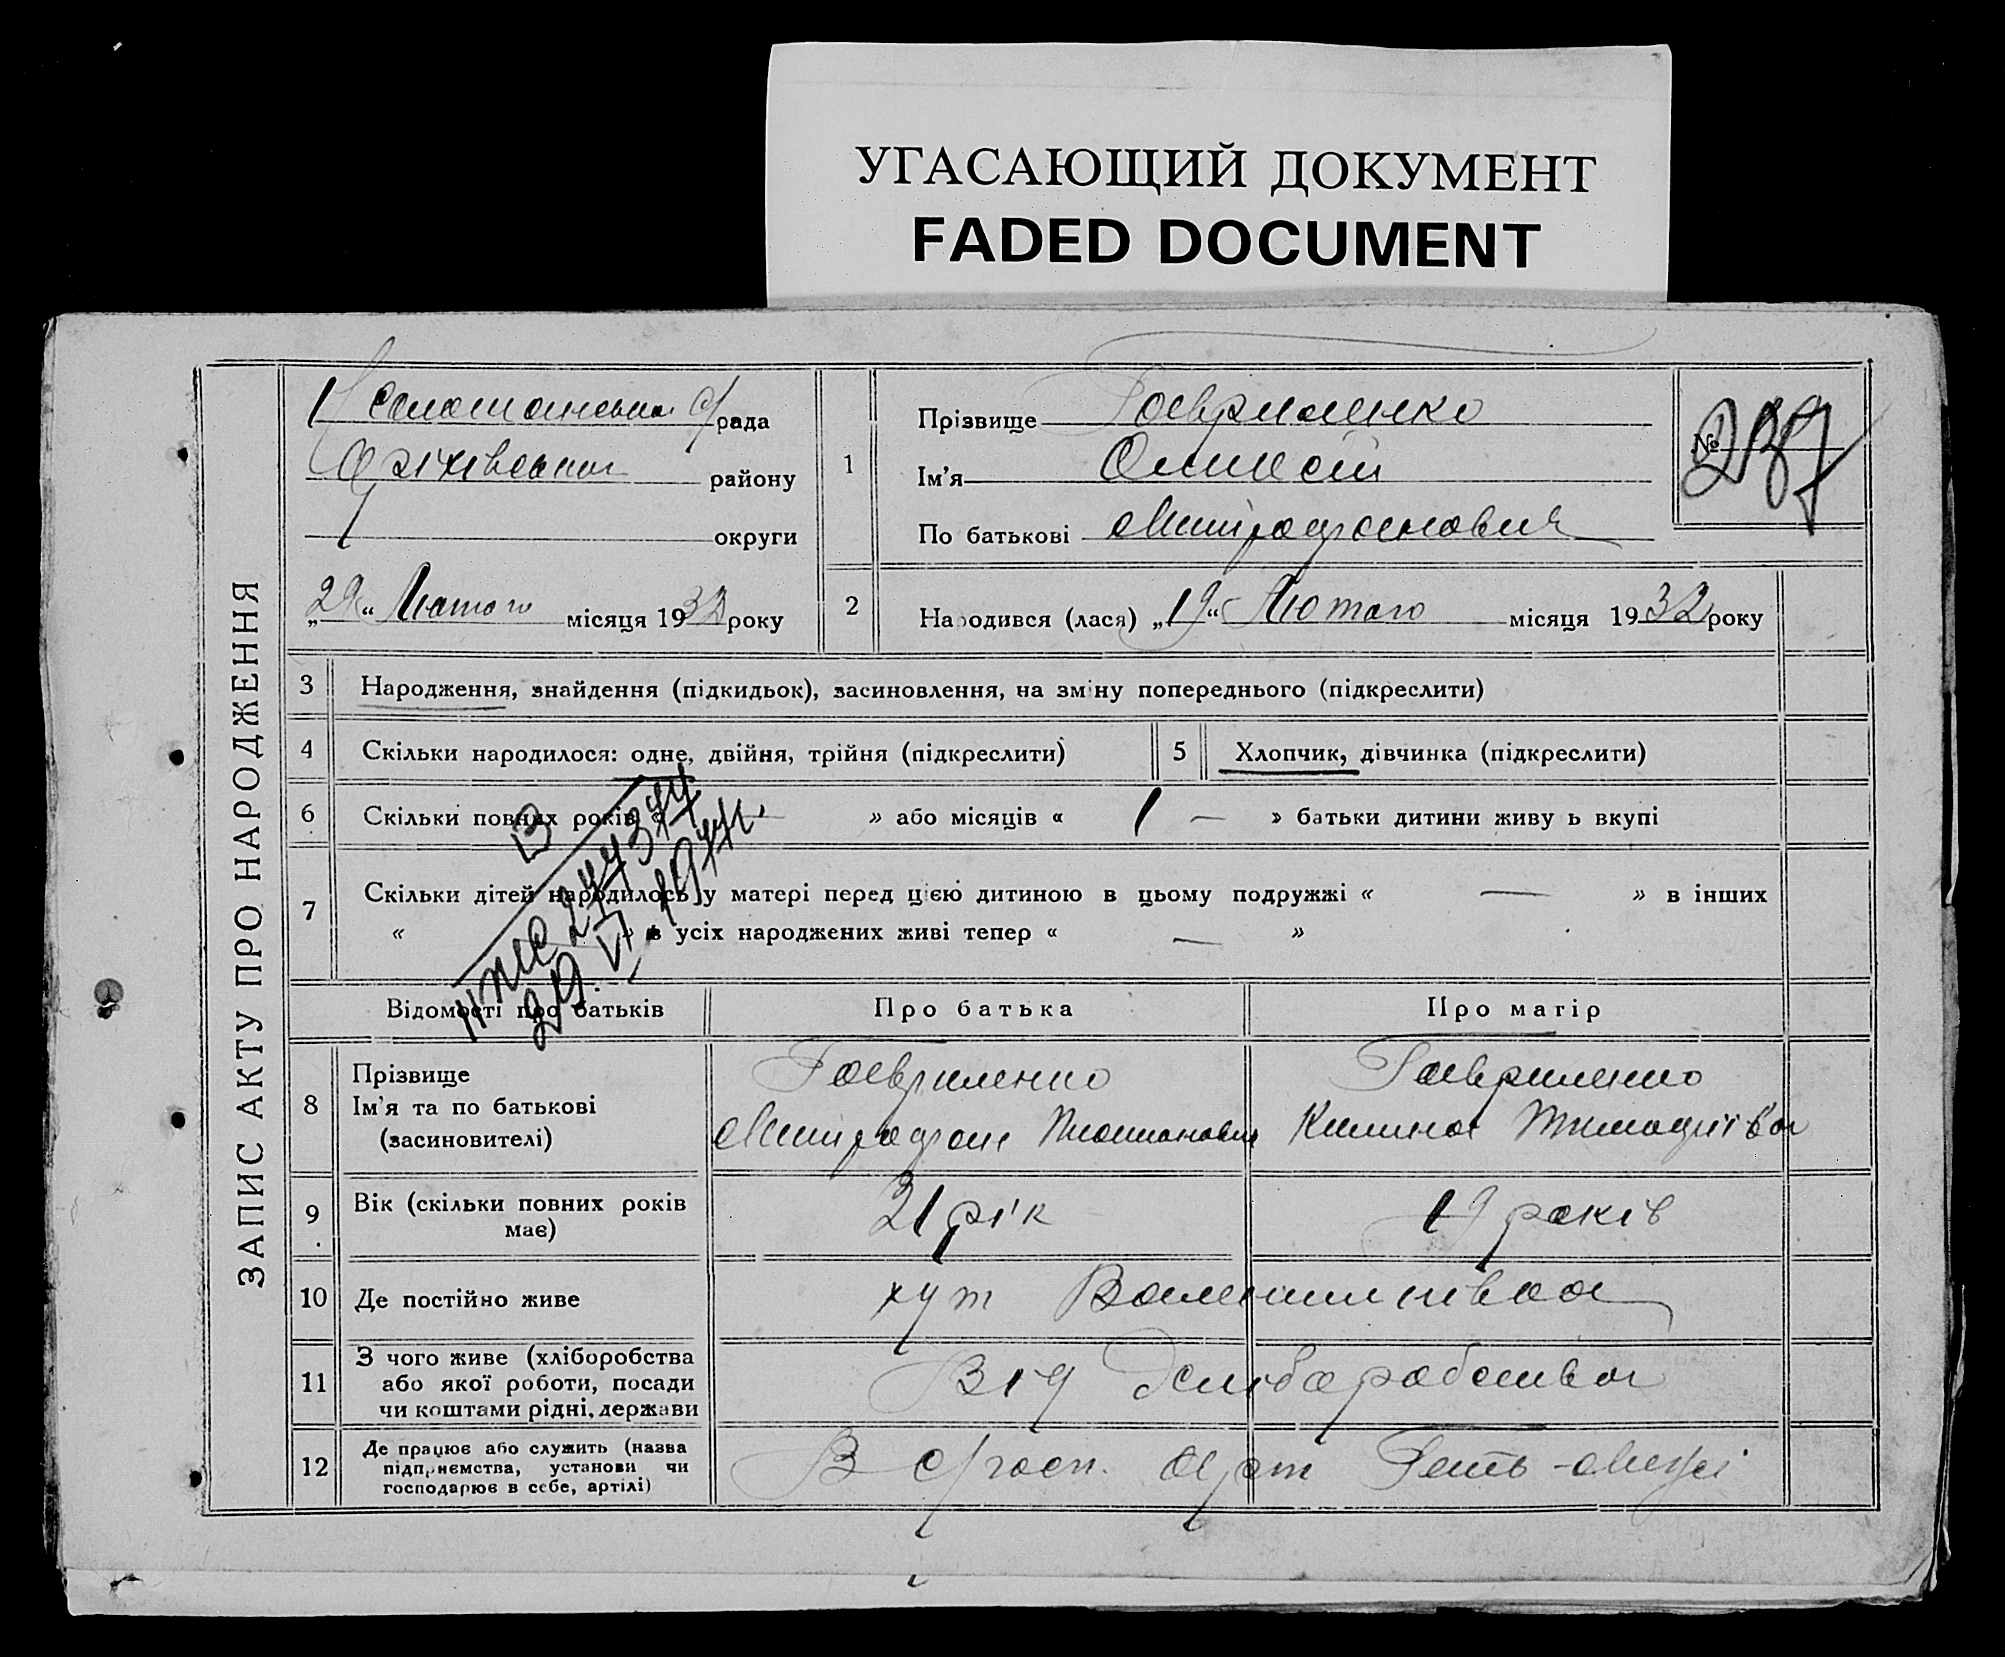 УГАСАЮЩИЙ ДОКУМЕНТ
FADED DOCUMENT
ЗАПИС АКТУ ПРО НАРОДЖЕННЯ
рада
району
округи
„29“ Лютого місяця 1932 року
1
Прізвище Гавриленко
Ім’я Олексій
По батькові Митрофанович
№ 237
2
Народився (лася) „19“ Лютого місяця 1932 року
3 Народження, знайдення (підкидьок), засиновлення, на зміну попереднього (підкреслити)
4 Скільки народилося: одне, двійня, трійня (підкреслити)
5 Хлопчик, дівчинка (підкреслити)
6 Скільки повних років « — » або місяців « 1 — » батьки дитини живуть вкупі
7 Скільки дітей народилось у матері перед цією дитиною в цьому подружжі « — » в інших
« » з усіх народжених живі тепер « — »
29.VI.1977г.
Відомості про батьків
Про батька
Про матір
8 Прізвище
Ім’я та по батькові
(засиновителі)
Гавриленко
Митрофан
Гавриленко
Килина Тимофіївна
9 Вік (скільки повних років
має)
21 рік
19 років
10 Де постійно живе
хут
11 З чого живе (хліборобства
або якої роботи, посади
чи коштами рідні, держави
Від хліборобства
12 Де працює або служить (назва
підприємства, установи чи
господарює в себе, артілі)
В с/госп. Арт